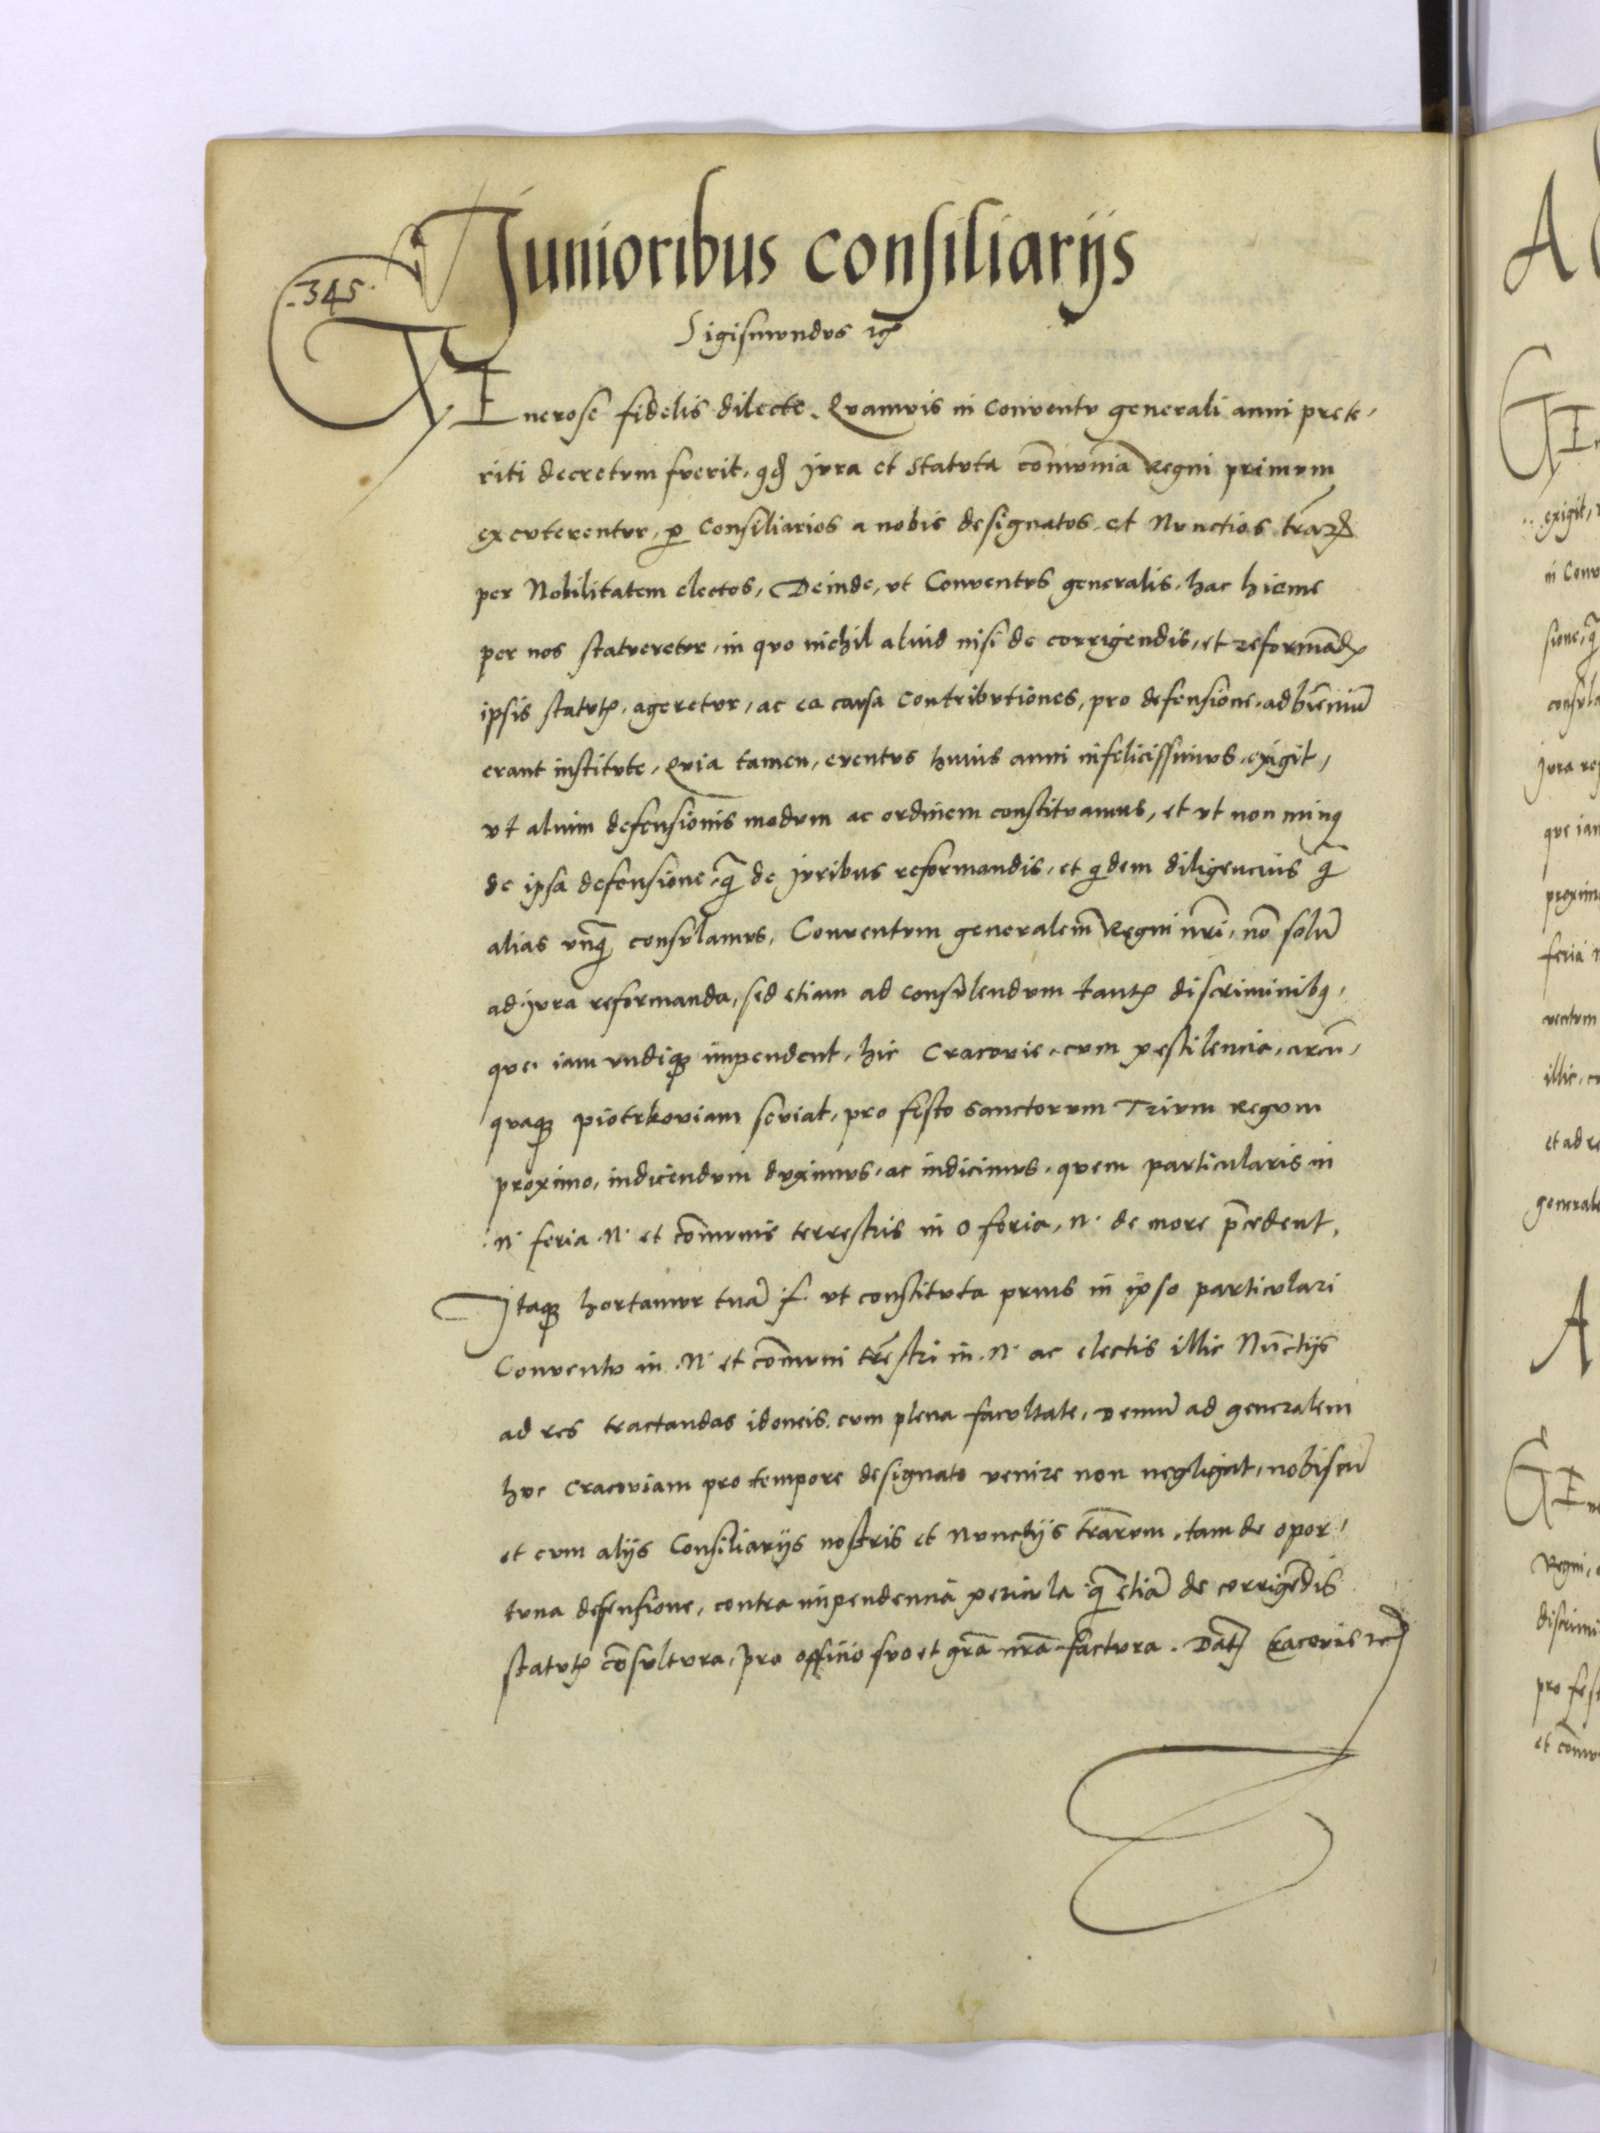 Junioribus consiliarijs
.345.
Sigismundus ꝛc̃
GEnerose fidelis dilecte. Quamuis in Conuentu generali anni prete,
riti decretum fuerit, qđ jura et statuta com̃unia Regni primum
excuterentur, ꝑ Consiliarios a nobis designatos, et Nunctios tr̃arꝝ
per Nobilitatem electos, Deinde, ut Conuentus generalis, hac hieme
per nos statueretur, in quo nichil aliud nisi de corrigendis, et reformãdꝭ
ipsis statutꝭ, ageretur, ac ea causa contributiones, pro defensione, ad bieñiũ
erant institute, Quia tamen, euentus huius anni infelicissimus, exigit,
ut alium defensionis modum ac ordinem constituamus, et ut non minꝰ
de ipsa defensione, q̃ de juribus reformandis, et qͥdem diligencius q̃
alias unq̃ consulamus, Conuentum generalem̃ Regni nr̃i, nõ solũ
ad jura reformanda, sed etiam ad consulendum tantꝭ discriminibꝰ,
que iam undiqꝫ impendent, hic Cracouie, cum pestilencia, circũ,
quaqꝫ piotrkouiam seuiat, pro festo sanctorum Trium Regum
proximo, indicendum duximus, ac indicimus, quem particularis in
.N. feria .N. et com̃unis terrestris in O feria, N. de more p̃cedent.
Itaqꝫ hortamur tuã f. ut constituta prius in ipso particulari
Conuentu in .N. et com̃uni tr̃estri in .N. ac electis illic Nũctijs
ad res tractandas idoneis, cum plena facultate, demũ ad generalem
huc Cracouiam pro tempore designato uenire non negligat, nobiscũ
et cum alijs Consiliarijs nostris et Nunctijs tr̃arum, tam de opor,
tuna defensione, contra impendencia pericula q̃ etiã de corrigẽdis
statutꝭ cõsultura, pro officio suo et gr̃a nr̃a factura. Datꝭ Cracouie ꝛc̃